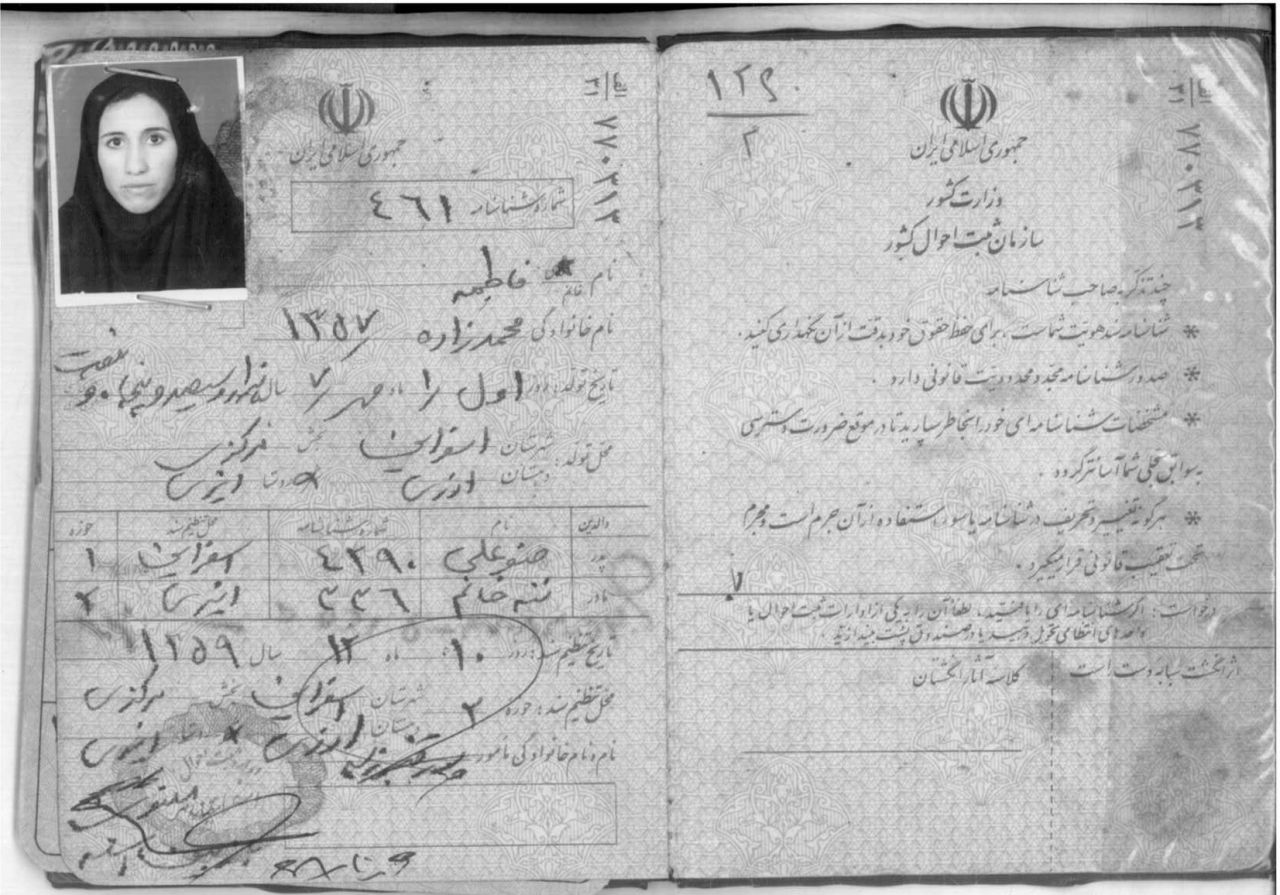 ۱۲۹۰
۳
جمهوری اسلامی ایران
وزارت کشور
سازمان ثبت احوال کشور
الف ۳۱
۷۷۰۳۱۳
چند تذکر به صاحب شناسنامه
* شناسنامه سند هویت شماست، برای حفظ حقوق خود بدقت از آن نگهداری کنید.
* صدور شناسنامه مجدد محدودیت قانونی دارد.
* مشخصات شناسنامه‌ای خود را بخاطر بسپارید تا در موقع ضرورت دسترسی
به سوابق سجلی شما آسانتر گردد.
* هرگونه تغییر و تحریف در شناسنامه یا سوء استفاده از آن جرم است و مجرم
تحت تعقیب قانونی قرار میگیرد.
درخواست: اگر شناسنامه‌ای را یافتید، لطفاً آن را به یکی از ادارات ثبت احوال یا
واحدهای انتظامی تحویل دهید یا در صندوق پست بیندازید.
اثر انگشت سبابه دست راست
کلاسه آثار انگشتان
جمهوری اسلامی ایران
الف ۳۱
۷۷۰۳۱۳
شماره شناسنامه ۴۶۱
نام خانم فاطمه
نام خانوادگی محمدزاده ۱۳۵۷
تاریخ تولد: روز اول ۱ ماه مهر ۷ سال هزار و سیصد و پنجاه و هفت
محل تولد: شهرستان اسفراین بخش مرکزی
دهستان روستا
والدین نام شماره شناسنامه محل تنظیم سند حوزه
پدر صفرعلی ۴۲۹۰ اسفراین ۱
مادر ننه خانم ۳۳۶ ۲
تاریخ تنظیم سند: روز ۱۰ ماه ۱۲ سال ۱۳۵۹
محل تنظیم سند: حوزه ۲ شهرستان اسفراین بخش مرکزی
دهستان روستا
نام و نام خانوادگی مأمور